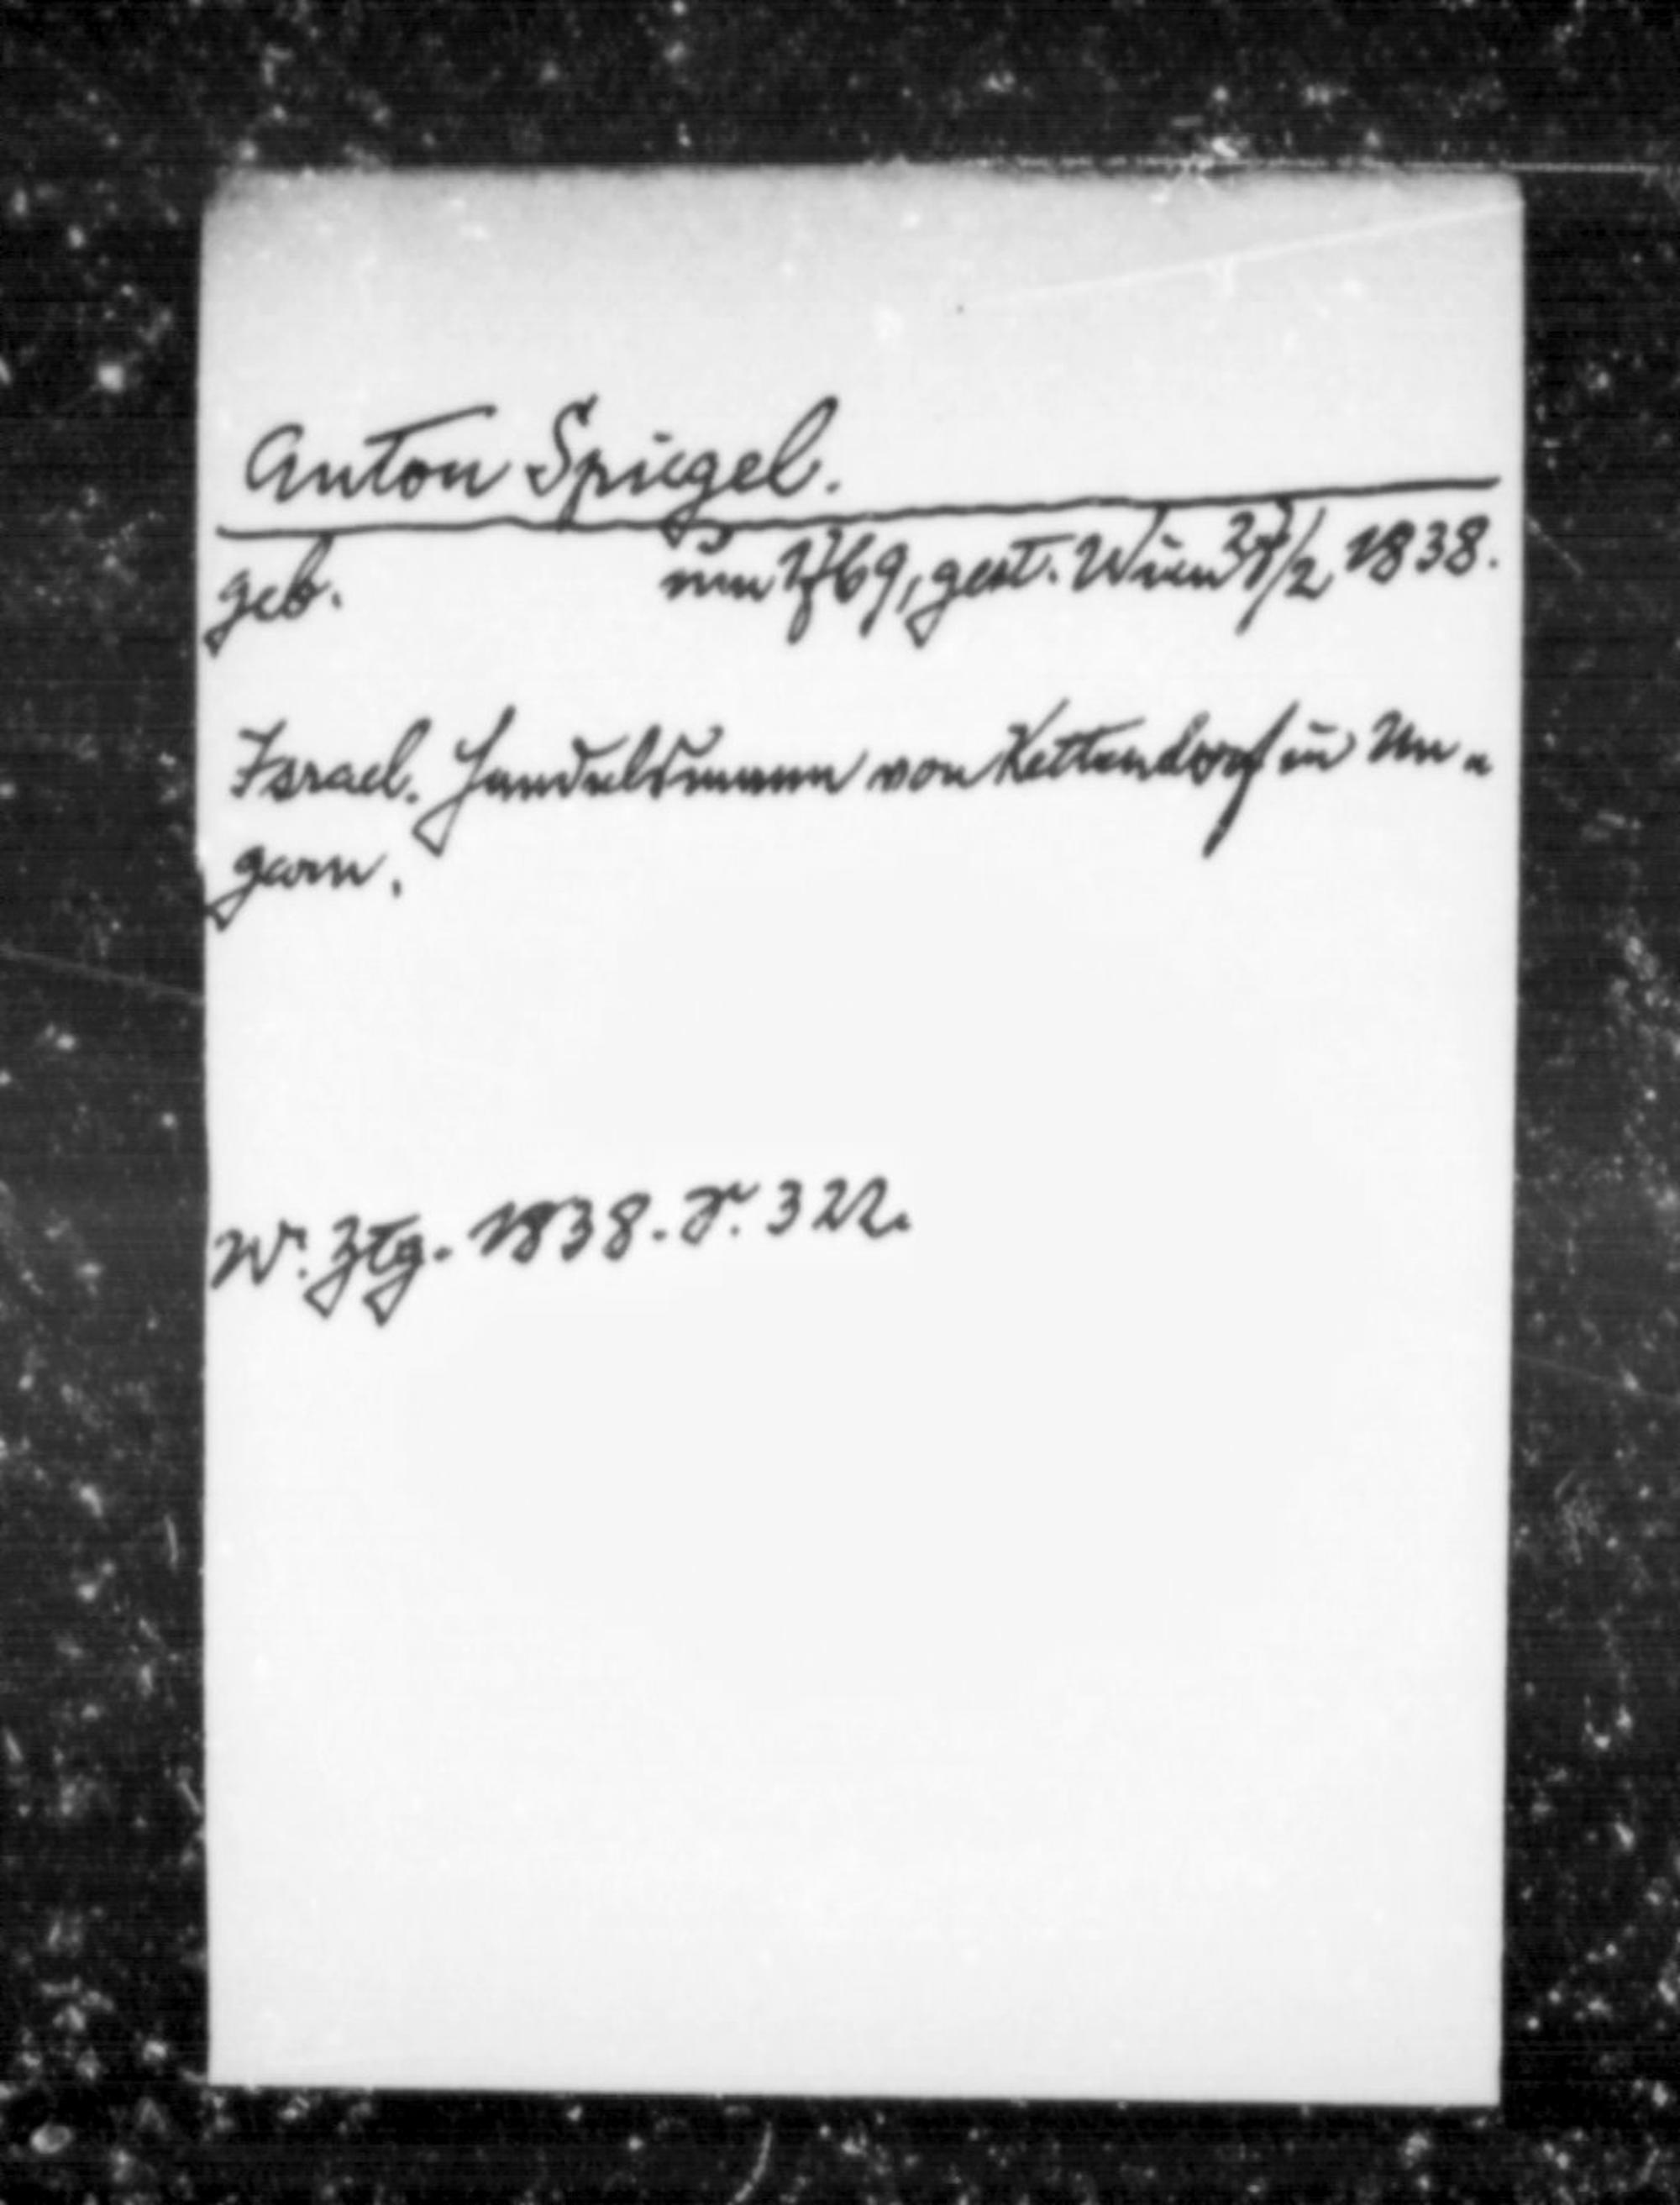 Anton Spiegel.
geb. um 1769, gest. Wien 27/2 1838.
Israel. Handelsmann von Kettendorf in Un-
garn.
Wr. Ztg. 1838. S. 322.